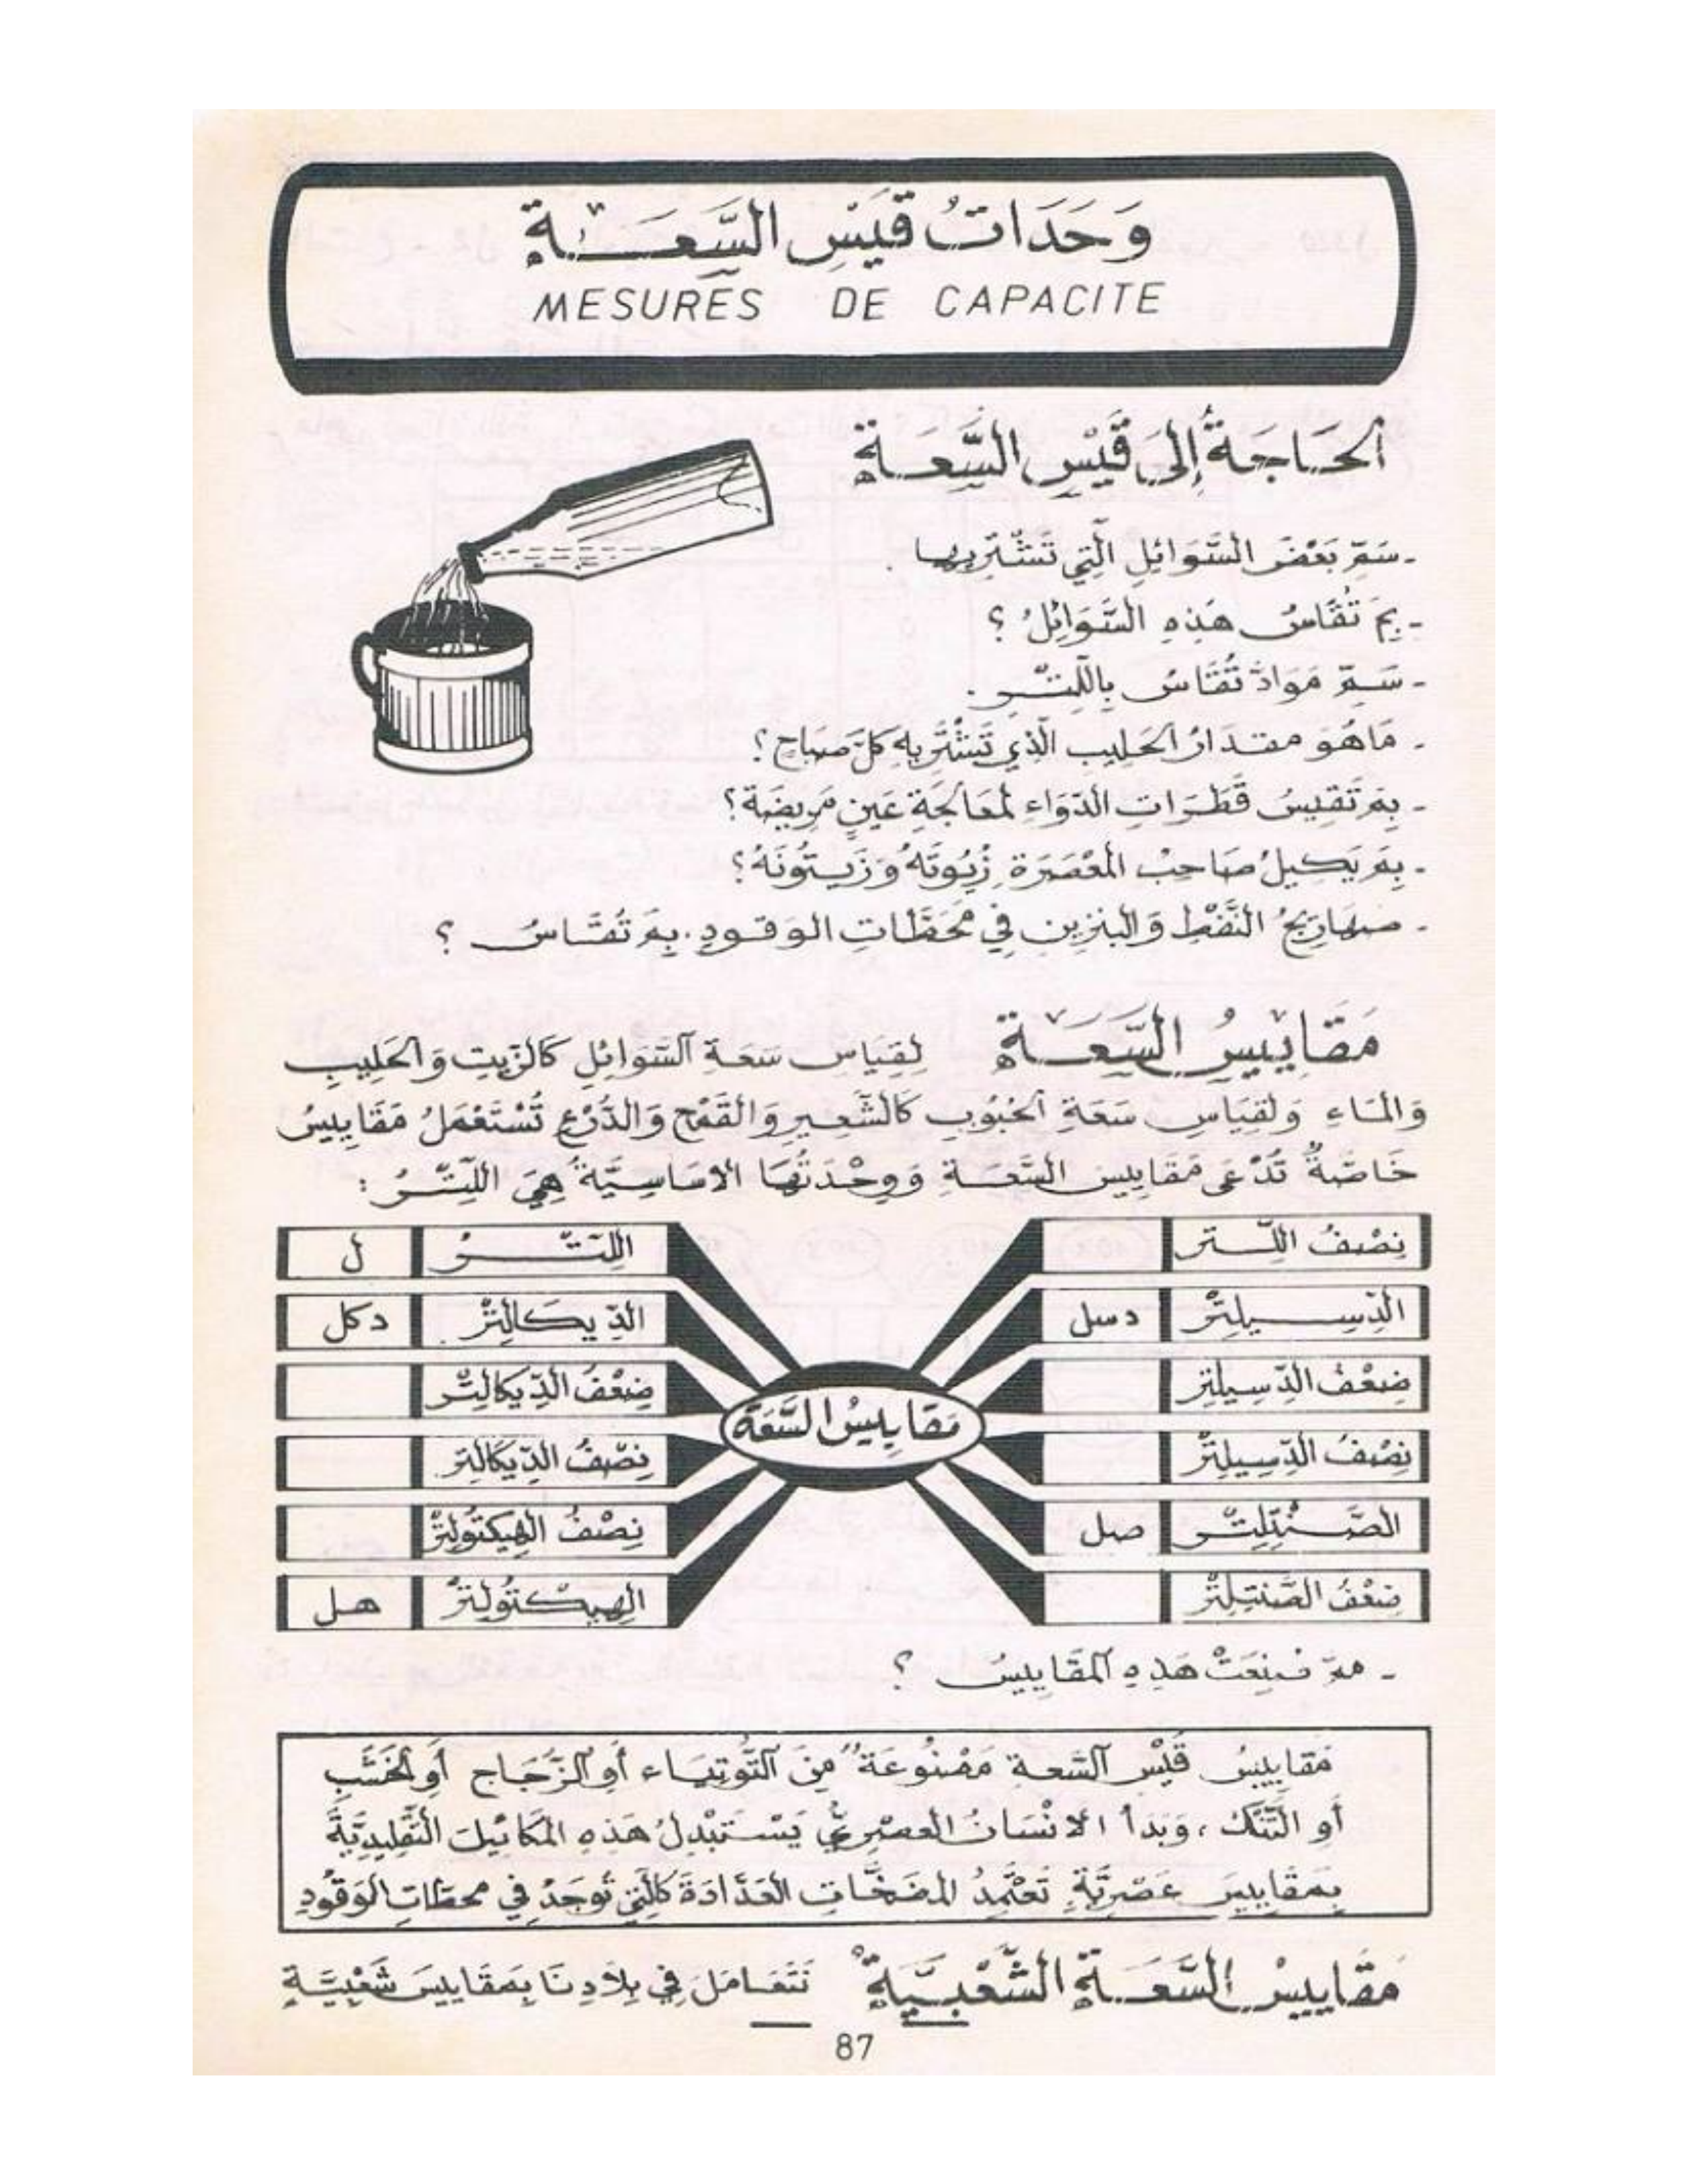 وَحَدَاتُ قَيْسِ السَّعَةِ
MESURES DE CAPACITE
اَلحَاجَةُ إِلَى قَيْسِ السَّعَةِ
- سَمِّ بَعْضَ السَّوَائِلِ الَّتِي تَشْتَرِيها .
- بِمَ تُقَاسُ هَذِهِ السَّوَائِلُ ؟
- سَمِّ مَوَادَّ تُقَاسُ بِاللِّتْرِ .
- مَا هُوَ مقدَارُ اَلحَلِيبِ الَّذِي تَشْتَرِيهِ كُلَّ صَبَاحٍ ؟
- بِمَ تَقِيسُ قَطَرَاتِ الدَّوَاءِ لمُعَالَجَةِ عَيْنٍ مَرِيضَة ؟
- بِمَ يَكِيلُ صَاحِبُ المَعْصَرَةِ زُيُوتَهُ وَزَيْتُونَهُ ؟
- صهارِيجُ النَّفْطِ وَالبنزين فِي مَحَطَّاتِ الوقودِ . بِمَ تُقَاسُ ؟
مَقَايِيسُ السَّعَةِ
لِقِيَاسِ سَعَةِ اَلسَّوَائِلِ كَالزَّيتِ وَاَلحَلِيبِ
وَالمَاءِ وَلقِيَاسِ سَعَةِ اَلحُبُوبِ كَالشَّعِيرِ وَالقَمْحِ وَالذُّرَع تُسْتَعْمَلُ مَقَايِيسُ
خَاصَّةٌ تُدْعَى مَقَايِيسَ السَّعَةِ وَوِحْدَتُهَا الاسَاسِيَّةُ هِيَ اللِّتْرُ :
نِصْفُ اللِّتر
اللِّتْرُ ل
الدِّسِيلِتْرُ دسل
الدِّيكَالِتْرُ دكل
ضِعْفُ الدِّسِيلِتر
ضِعْفُ الدِّيكَالِتْر
مَقَايِيسُ السَّعَة
نِصْفُ الدِّسِيلِتْر
نِصْفُ الدِّيكَالِتر
الصَّنْتِلِتْر صل
نِصْفُ الهِيكتُولِتْر
ضِعْفُ الصَّنتِلِتْر
الهِيكْتُولِتْرُ هل
- ممَّ صُنِعَتْ هَذِهِ اَلمَقَايِيسُ ؟
مَقَايِيسُ قَيْسِ اَلسَّعةِ مَصْنُوعَة مِنَ اَلتُّوتِيَاء أَو اَلزُّجَاج أَو اَلخَشَبِ
أَو التَّنَك ، وَبَدأ الاِنْسَانُ العصْرِيُّ يَسْتَبْدِلُ هَذِهِ المكَايِيلَ التَّقْلِيدِيَّةَ
بِمَقَايِيسَ عَصْرِيَّةٍ تَعْتَمِدُ المضَخَّاتِ العَدَّادَةَ كَالَّتِي تُوجَدُ فِي محطَّاتِ الوَقُودِ
مَقَايِيسُ السَّعَةِ الشَّعْبِيَّةُ
نَتَعَامَلُ فِي بِلَادِنَا بِمَقَايِيسَ شَعْبِيَّةٍ
87